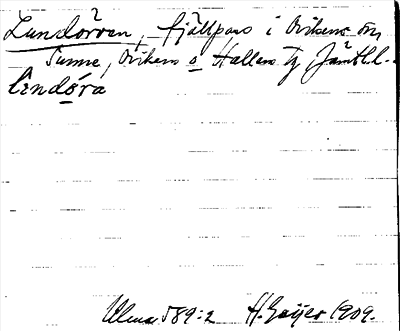 Lundörren, fjällpass i Ovikens sn,
Sunne, Ovikens o Hallens tg, Jämtl. l.
lendǫ́ra
Ulma 589:2 H. Geijer 1909.